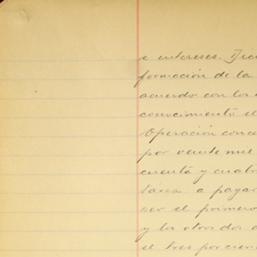 e intereses.
formación de la
acuerdo con los
conocimiento el
Operación conce
por veinte mil
cuenta y cuatro
a pagar
ser el primero
y los otros dos a
el tres por cien